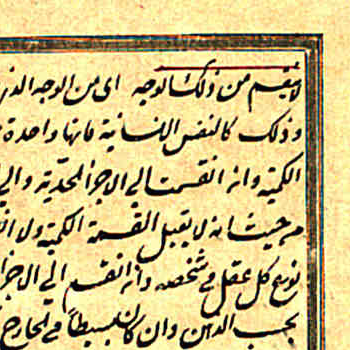 لا ينقسم من ذلك الوجه اى من الوجه الذى
وذلك كالنفس الانسانية فانها واحدة
الكمية وان انقسمت الى الاجزاء الحدية والى
من حيث انه لا يقبل القسمة الكمية ولا
نوع كل عقل فى شخصه وان انقسم الى الاجزاء
بحسب الذهن وان كان بسيطا فى الخارج